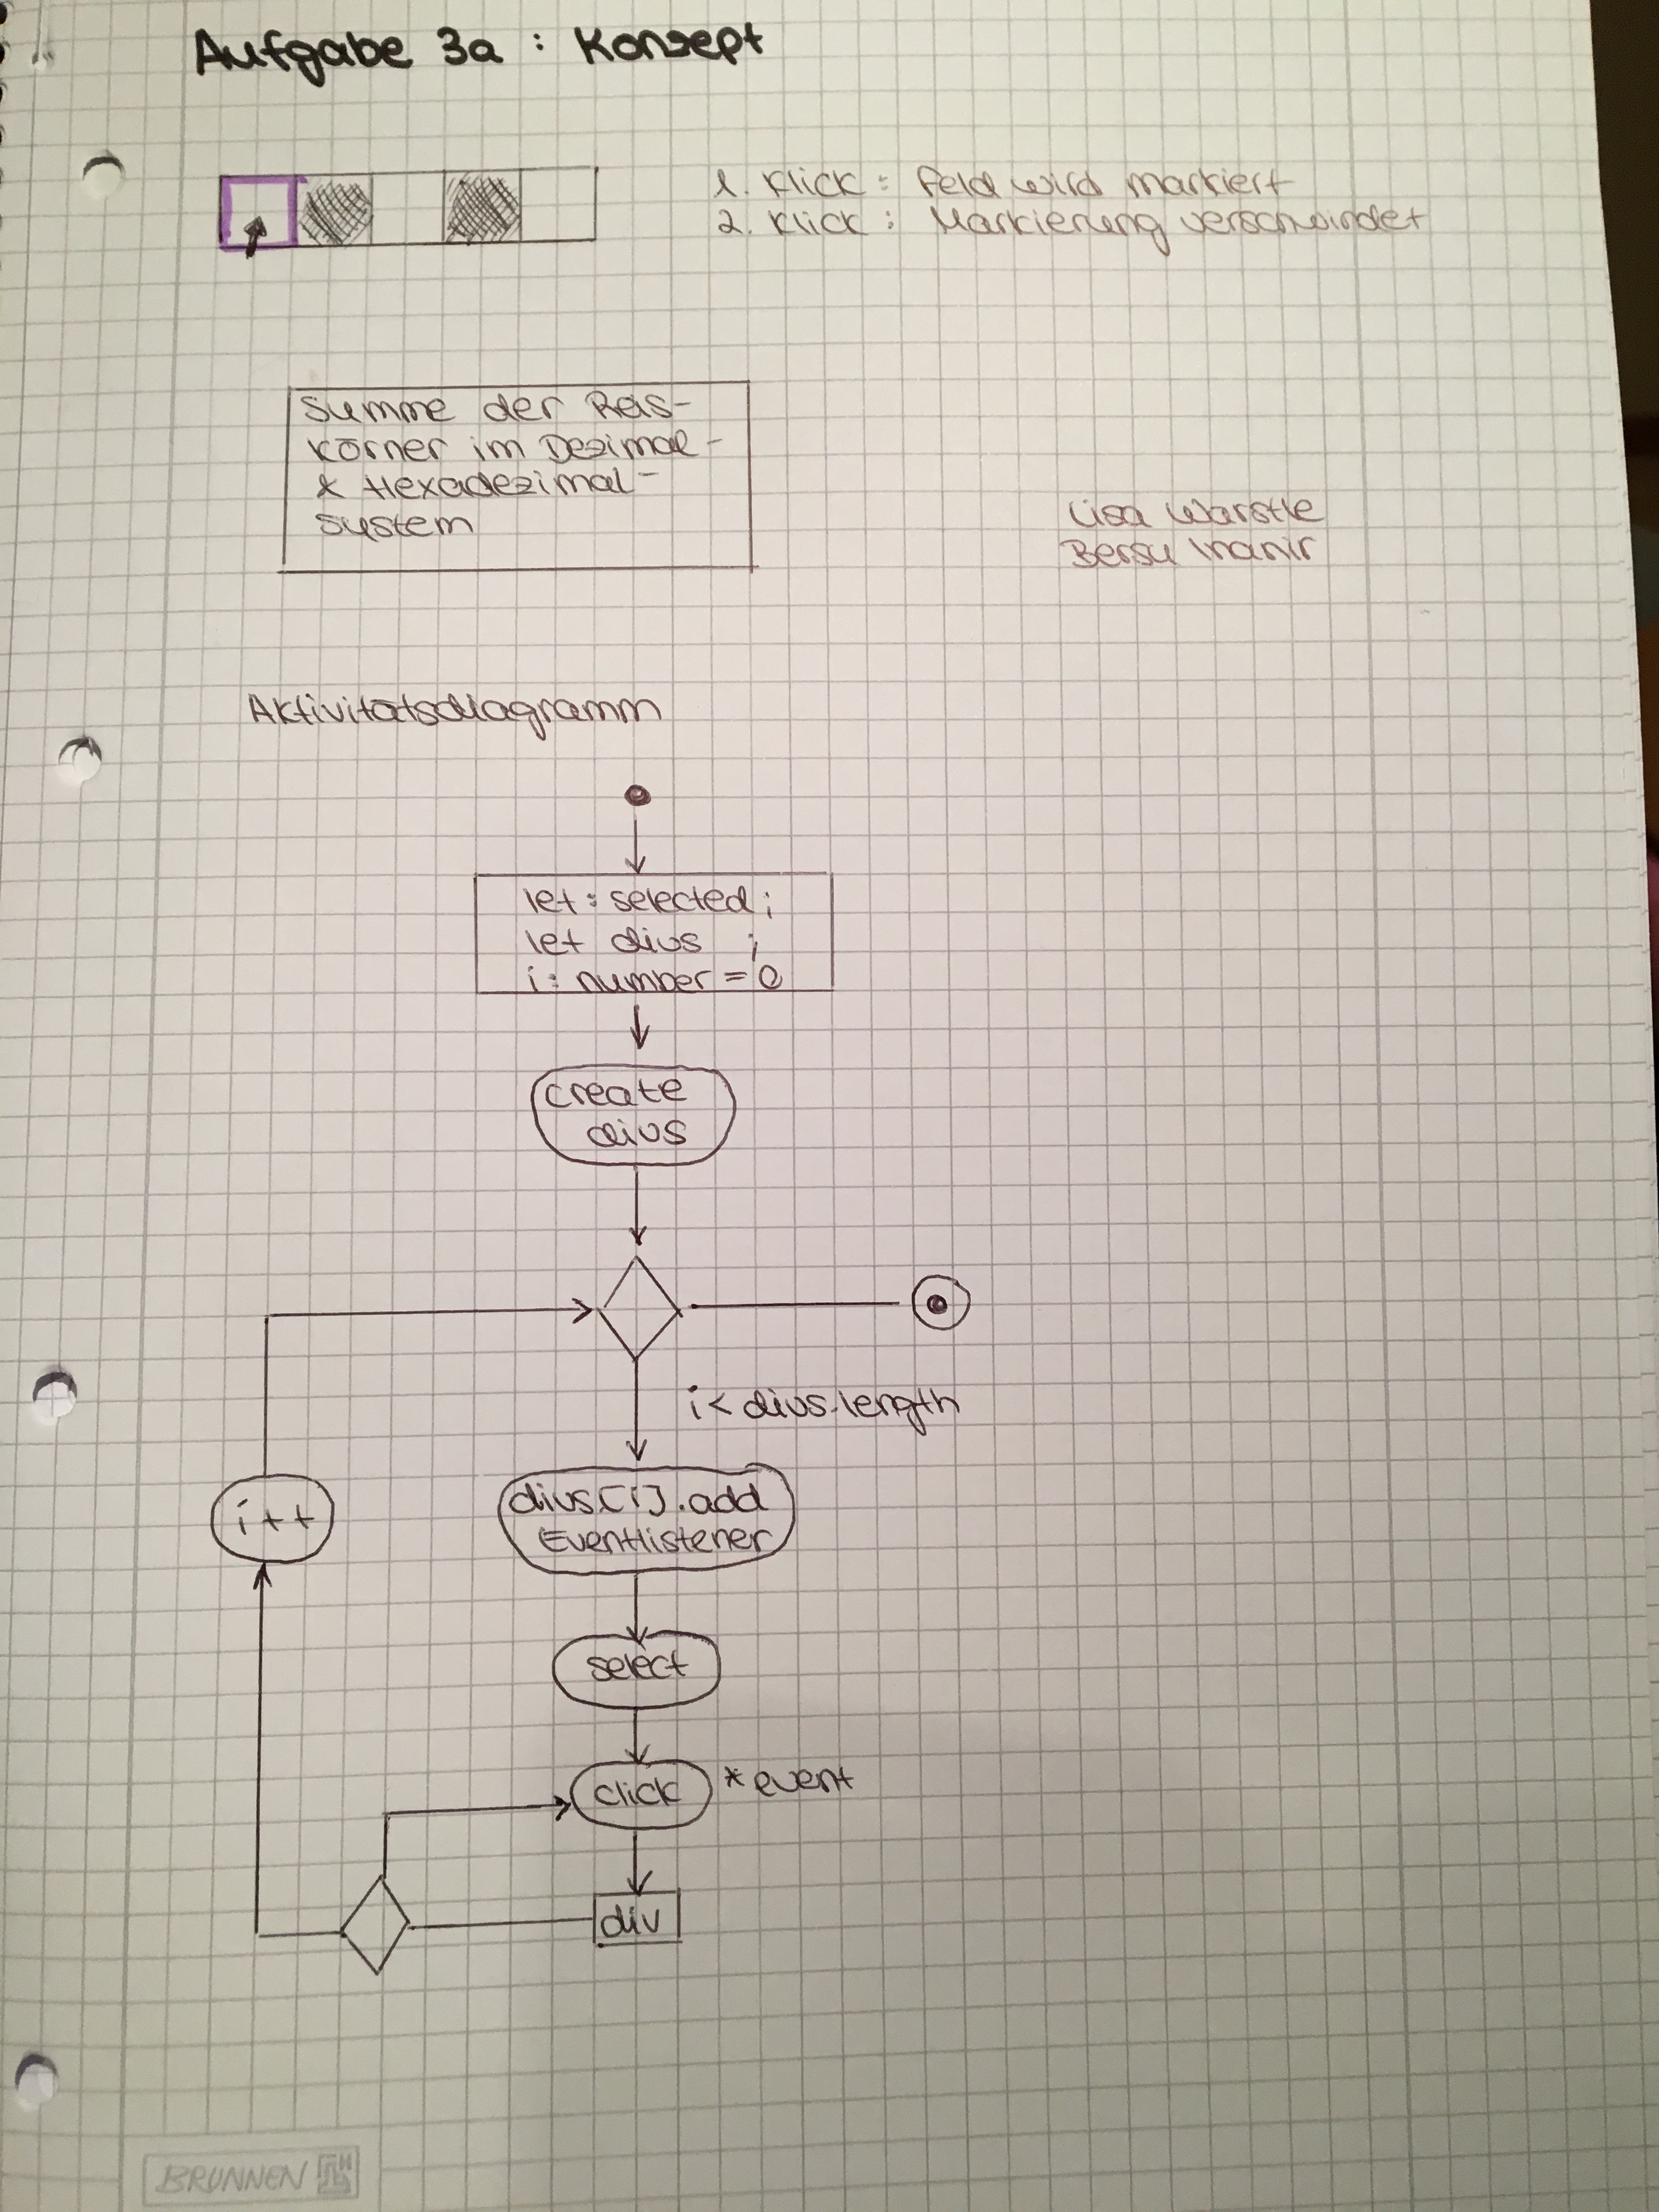 Aufgabe 3a : Konzept
1. Klick : Feld wird markiert
2. Klick : Markierung verschwindet
Summe der Reis-
körner im Dezimal-
& Hexadezimal-
system
Lisa Würstle
Bersu Inanir
Aktivitätsdiagramm
let : selected ;
let divs ;
i : number = 0
create
divs
i < divs.length
i++
divs.[i].add
Eventlistener
select
click * event
div
BRUNNEN